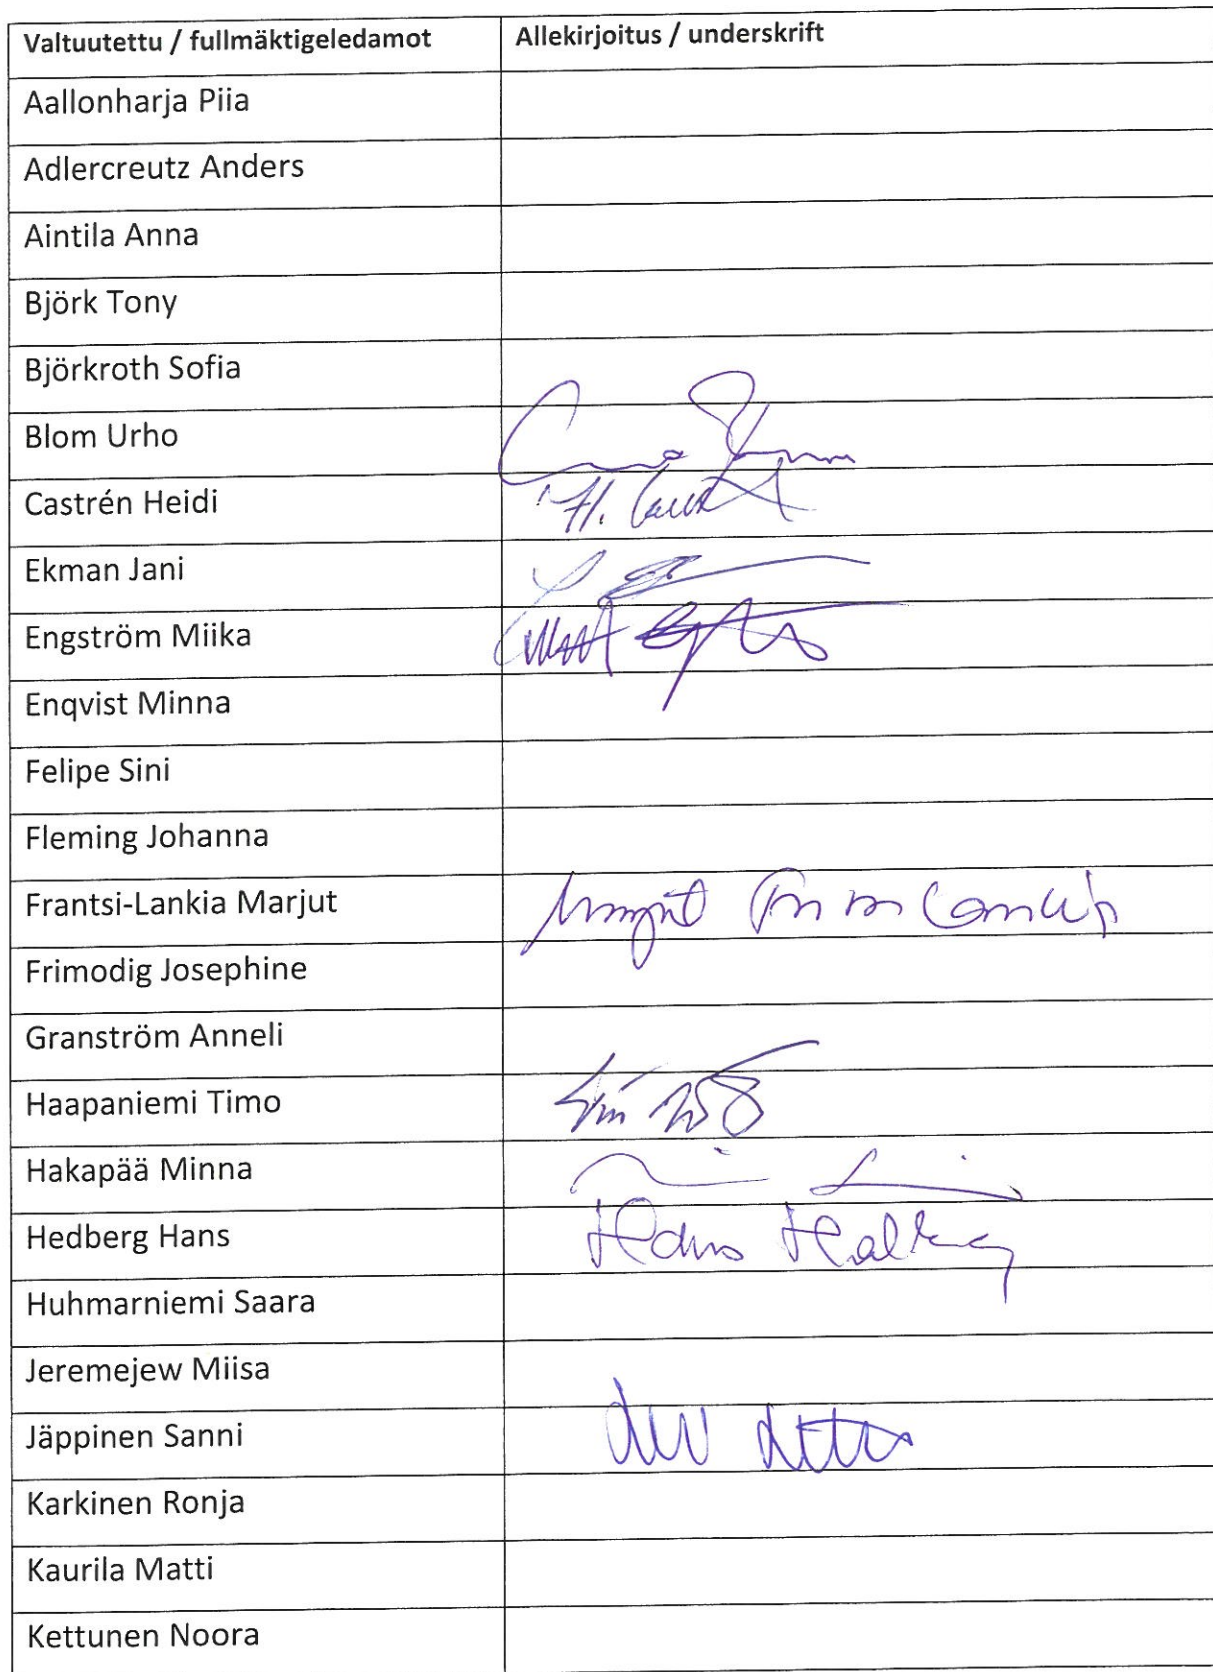 Valtuutettu / fullmäktigeledamot Allekirjoitus / underskrift
Aallonharja Piia
Adlercreutz Anders
Aintila Anna
Björk Tony
Björkroth Sofia
Blom Urho
Castrén Heidi
Ekman Jani
Engström Miika
Enqvist Minna
Felipe Sini
Fleming Johanna
Frantsi-Lankia Marjut
Frimodig Josephine
Granström Anneli
Haapaniemi Timo
Hakapää Minna
Hedberg Hans
Huhmarniemi Saara
Jeremejew Miisa
Jäppinen Sanni
Karkinen Ronja
Kaurila Matti
Kettunen Noora